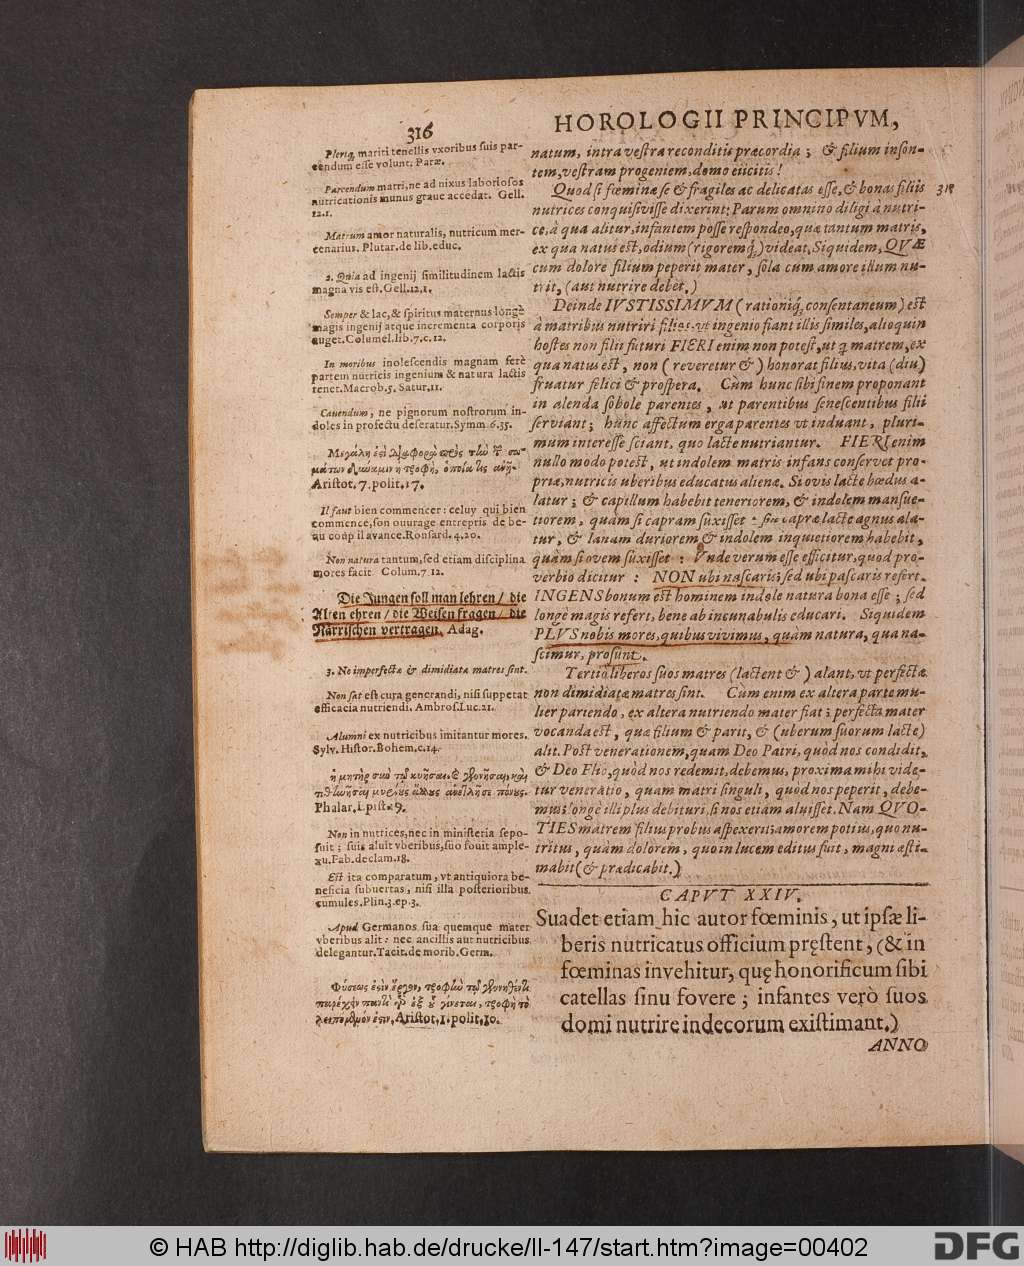 316
HOROLOGII PRINCIPVM,
Pleriq; mariti tenellis vxoribus suis par-
cendum esse volunt. Paræ.
Parcendum matri, ne ad nixus laboriosos
nutricationis munus graue accedat. Gell.
12.1.
Matrum amor naturalis, nutricum mer-
cenarius. Plutar. de lib. educ.
2. Quia ad ingenij similitudinem lactis
magna vis est. Gell. 12. 1.
Semper & lac, & spiritus maternus longè
magis ingenij atque incrementa corporis
auget. Columel. lib. 7. c. 12.
In moribus inolescendis magnam ferè
partem nutricis ingenium & natura lactis
tenet. Macrob. 5. Satur. 11.
Cauendum, ne pignorum nostrorum in-
doles in profectu deseratur. Symm. 6. 35.
Aristot. 7. polit. 17.
Il faut bien commencer: celuy qui bien
commence, son ouurage entrepris de be-
au coup il avance. Ronsard. 4. 20.
Non natura tantum, sed etiam disciplina
mores facit. Colum. 7. 12.
Die Jungen soll man lehren / die
Alten ehren / die Weisen fragen / die
Närrischen vertragen. Adag.
3. Ne imperfectæ & dimidiatæ matres sint.
Non sat est cura generandi, nisi suppetat
efficacia nutriendi. Ambros. Luc. 21.
Alumni ex nutricibus imitantur mores.
Sylv. Histor. Bohem. c. 14.
Phalar. Epist. 9.
Non in nutrices, nec in ministeria sepo-
suit; suis aluit vberibus, suo fouit ample-
xu. Fab. declam. 18.
Est ita comparatum, vt antiquiora be-
neficia subuertas, nisi illa posterioribus
cumules. Plin. 3. ep. 3.
Apud Germanos sua quemque mater
vberibus alit: nec ancillis aut nutricibus
delegantur. Tacit. de morib. Germ.
Aristot. 1. polit. 10.
natum, intra vestra reconditis præcordia; & filium inson-
tem, vestram progeniem, domo eiicitis!
Quod si fœminæ se & fragiles ac delicatas esse, & bonas filiis
318
nutrices conquisivisse dixerint: Parum omnino diligi à nutri-
ce, à qua alitur, infantem posse respondeo, quæ tantum matris,
ex qua natus est, odium (rigoremq́;) videat, Siquidem, QVÆ
cum dolore filium peperit mater, sola cum amore illum nu-
trit, (aut nutrire debet.)
Deinde IVSTISSIMVM (rationiq́; consentaneum) est
à matribus nutriri filios, vt ingenio fiant illis similes, alioquin
hostes non filii futuri FIERI enim non potest, ut q matrem, ex
qua natus est, non (reveretur &) honorat filius, vita (diu)
fruatur felici & prospera. Cùm hunc sibi finem proponant
in alenda sobole parentes, ut parentibus senescentibus filii
serviant; hunc affectum erga parentes vt induant, pluri-
mum interesse sciant, quo lacte nutriantur. FIERI enim
nullo modo potest, ut indolem matris infans conservet pro-
priæ, nutricis uberibus educatus alienæ. Si ovis lacte hœdus a-
latur; & capillum habebit teneriorem, & indolem mansue-
tiorem, quàm si capram suxisset: sin capræ lacte agnus ala-
tur, & lanam duriorem & indolem inquietiorem habebit,
quàm si ovem suxisset: Vnde verum esse efficitur, quod pro-
verbio dicitur: NON ubi nascaris; sed ubi pascaris refert.
INGENS bonum est hominem indole natura bona esse; sed
longè magis refert, bene ab incunabulis educari. Siquidem
PLVS nobis mores, quibus vivimus, quàm natura, qua na-
scimur, prosunt.
Tertiò liberos suos matres (lactent &) alant, vt perfectæ
non dimidiatæ matres sint. Cùm enim ex altera parte mu-
lier pariendo, ex altera nutriendo mater fiat; perfecta mater
vocanda est, quæ filium & parit, & (uberum suorum lacte)
alit. Post venerationem, quam Deo Patri, quòd nos condidit,
& Deo Filio, quòd nos redemit, debemus, proxima mihi vide-
tur veneratio, quam matri singuli, quòd nos peperit, debe-
mus; longè illi plus debituri, si nos etiam aluisset. Nam QVO-
TIES matrem filius probus aspexerit; amorem potius, quo nu-
tritus, quàm dolorem, quo in lucem editus fuit, magni æsti-
mabit (& prædicabit.)
CAPVT XXIV.
Suadet etiam hic autor fœminis, ut ipsæ li-
beris nutricatus officium pręstent, (& in
fœminas invehitur, quę honorificum sibi
catellas sinu fovere; infantes verò suos
domi nutrire indecorum existimant.)
ANNO
© HAB http://diglib.hab.de/drucke/ll-147/start.htm?image=00402
DFG